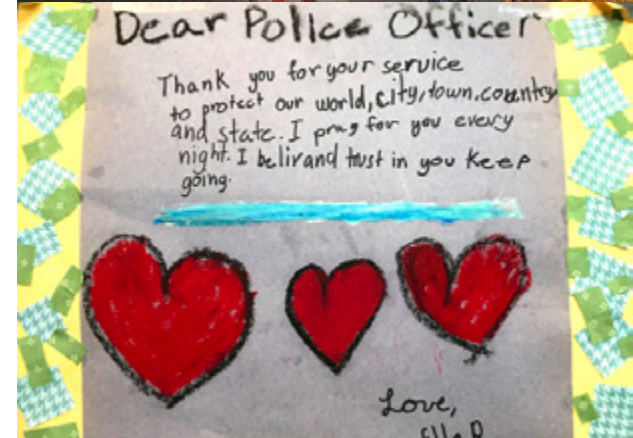 Dear Police Officer
Thank you for your service
to protect our world, city, town, country
and state. I pray for you every
night. I belirand trust in you keep
going.
Love,